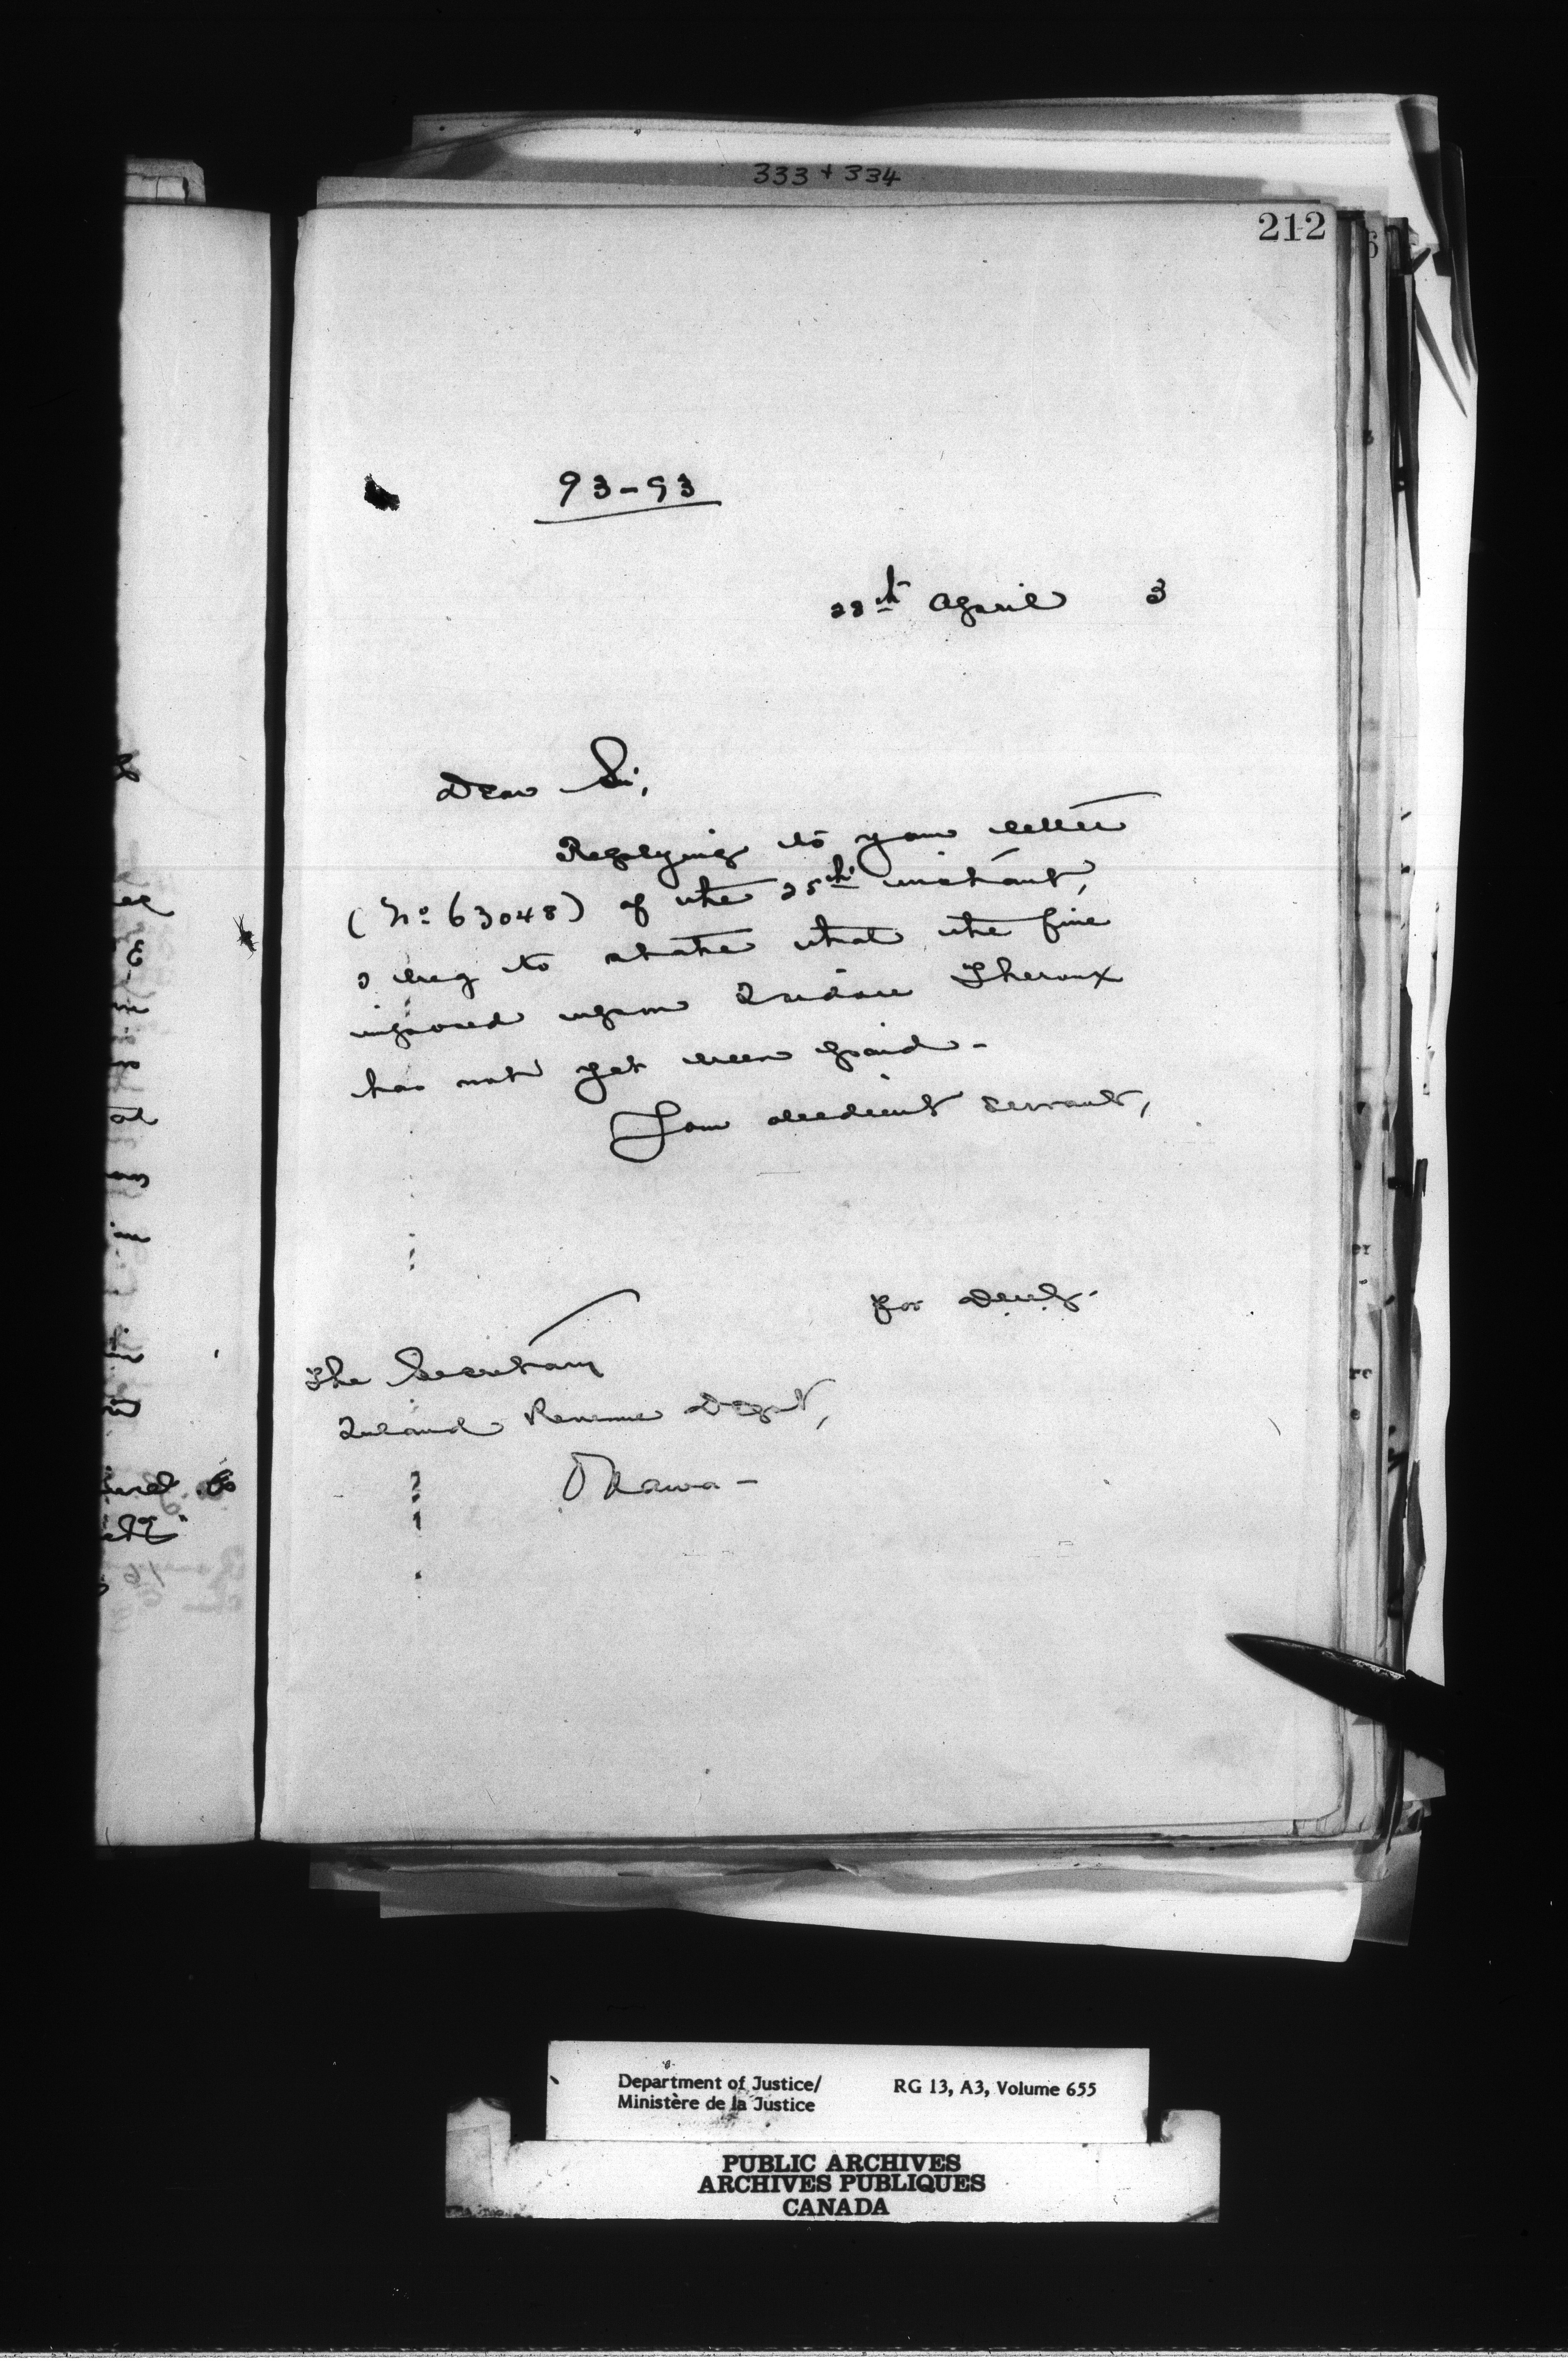 333 + 334
212
93-93
28th April 3
Dear Sir,
Replying to your letter
(No. 63048) of the 25th instant,
I beg to state that the fine
imposed upon Isidore Theroux
has not yet been paid -
Your obedient servant,
For D.M.J.
The Secretary
Inland Revenue Dept,
Ottawa -
Department of Justice/
Ministère de la Justice
RG 13, A3, Volume 655
PUBLIC ARCHIVES
ARCHIVES PUBLIQUES
CANADA